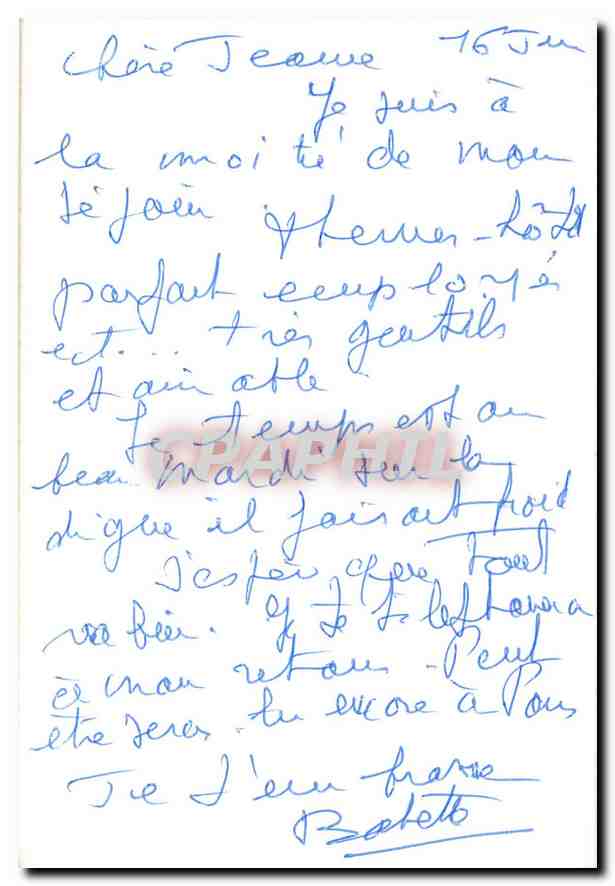 Chère Jeanne 16 Juin
Je suis à
la moitié de mon
séjour thermes-hôtel
parfait employés
ect... très gentils
et aimable.
Le temps est au
beau mardi sur la
CPAPHIL
digue il faisait froid
J'espère que Tout
va bien. Je te telephonerai
à mon retour. Peut
etre seras-tu encore à Paris
Je t'embrasse
Babeth